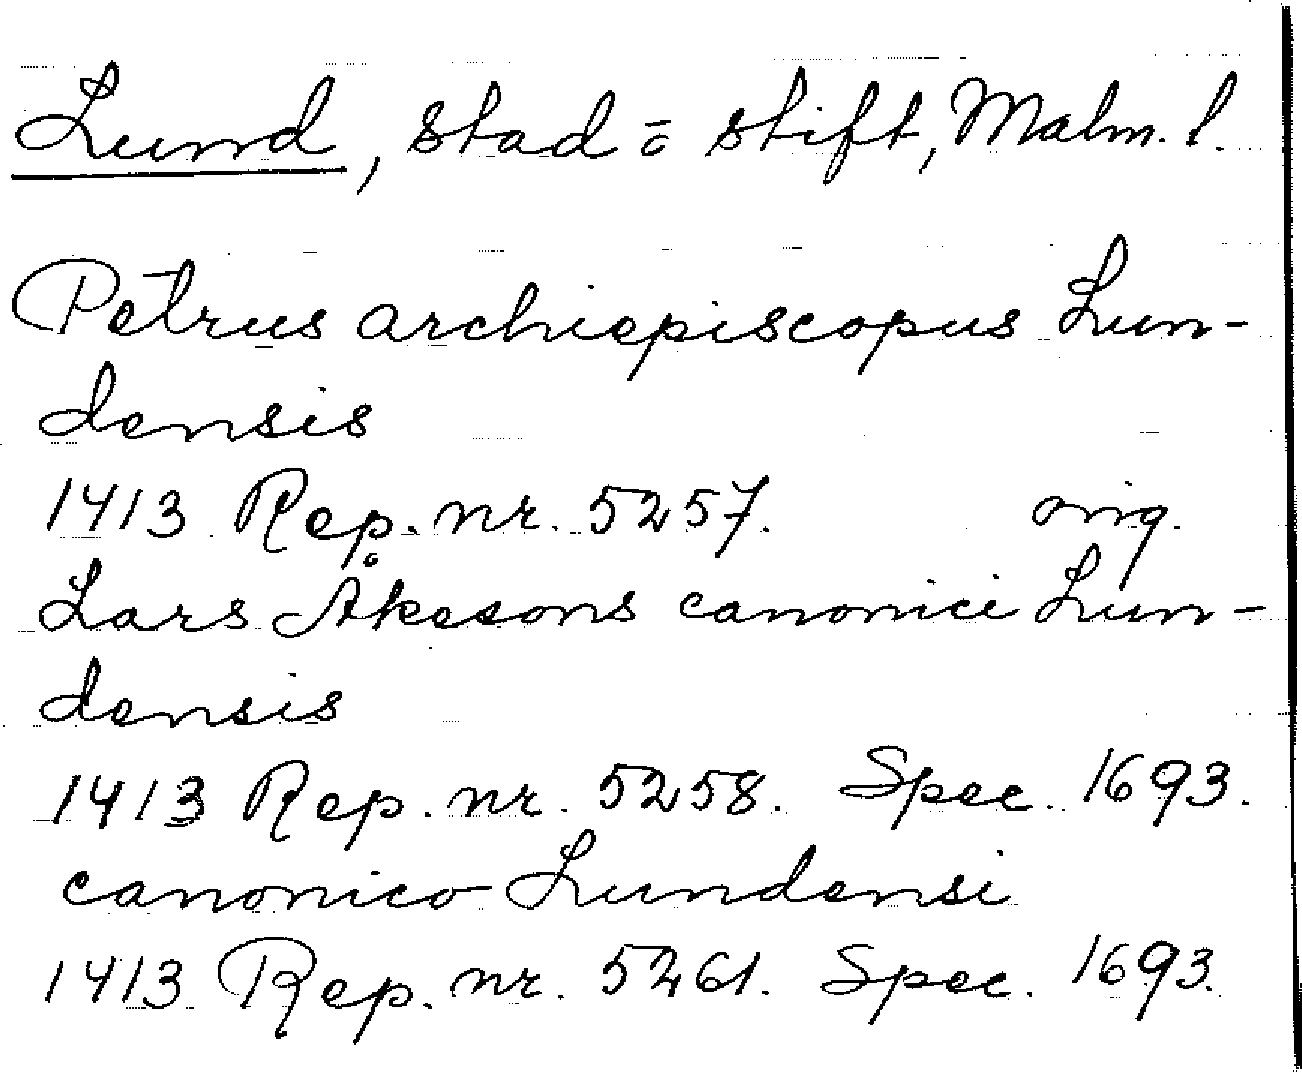 Lund, stad o stift, Malm. l.
Petrus archiepiscopus Lun-
densis
1413 Rep. nr. 5257. orig.
Lars Åkesons canonici Lun-
densis
1413 Rep. nr. 5258. Spec. 1693.
canonico Lundensi
1413 Rep. nr. 5261. Spec. 1693.